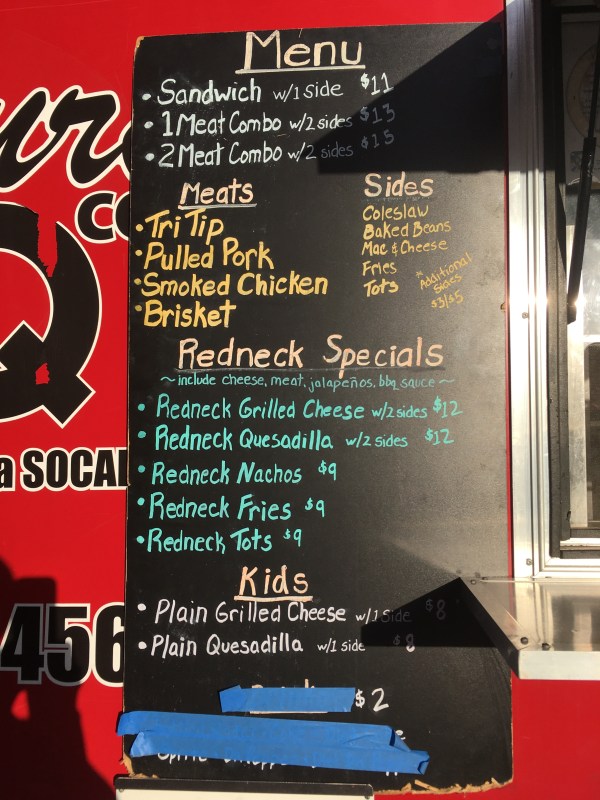 Menu
• Sandwich w/1 side $11
• 1 Meat Combo w/2 sides $13
• 2 Meat Combo w/2 sides $15
Meats
• Tri Tip
• Pulled Pork
• Smoked Chicken
• Brisket
Sides
Coleslaw
Baked Beans
Mac & Cheese
Fries
Tots
Additional
Sides
$3/$5
Redneck Specials
~include cheese, meat, jalapeños, bbq sauce~
• Redneck Grilled Cheese w/2 sides $12
• Redneck Quesadilla w/2 sides $12
• Redneck Nachos $9
• Redneck Fries $9
• Redneck Tots $9
Kids
• Plain Grilled Cheese w/1 Side $8
• Plain Quesadilla w/1 side $8
$2
Q
a SOCAL
456